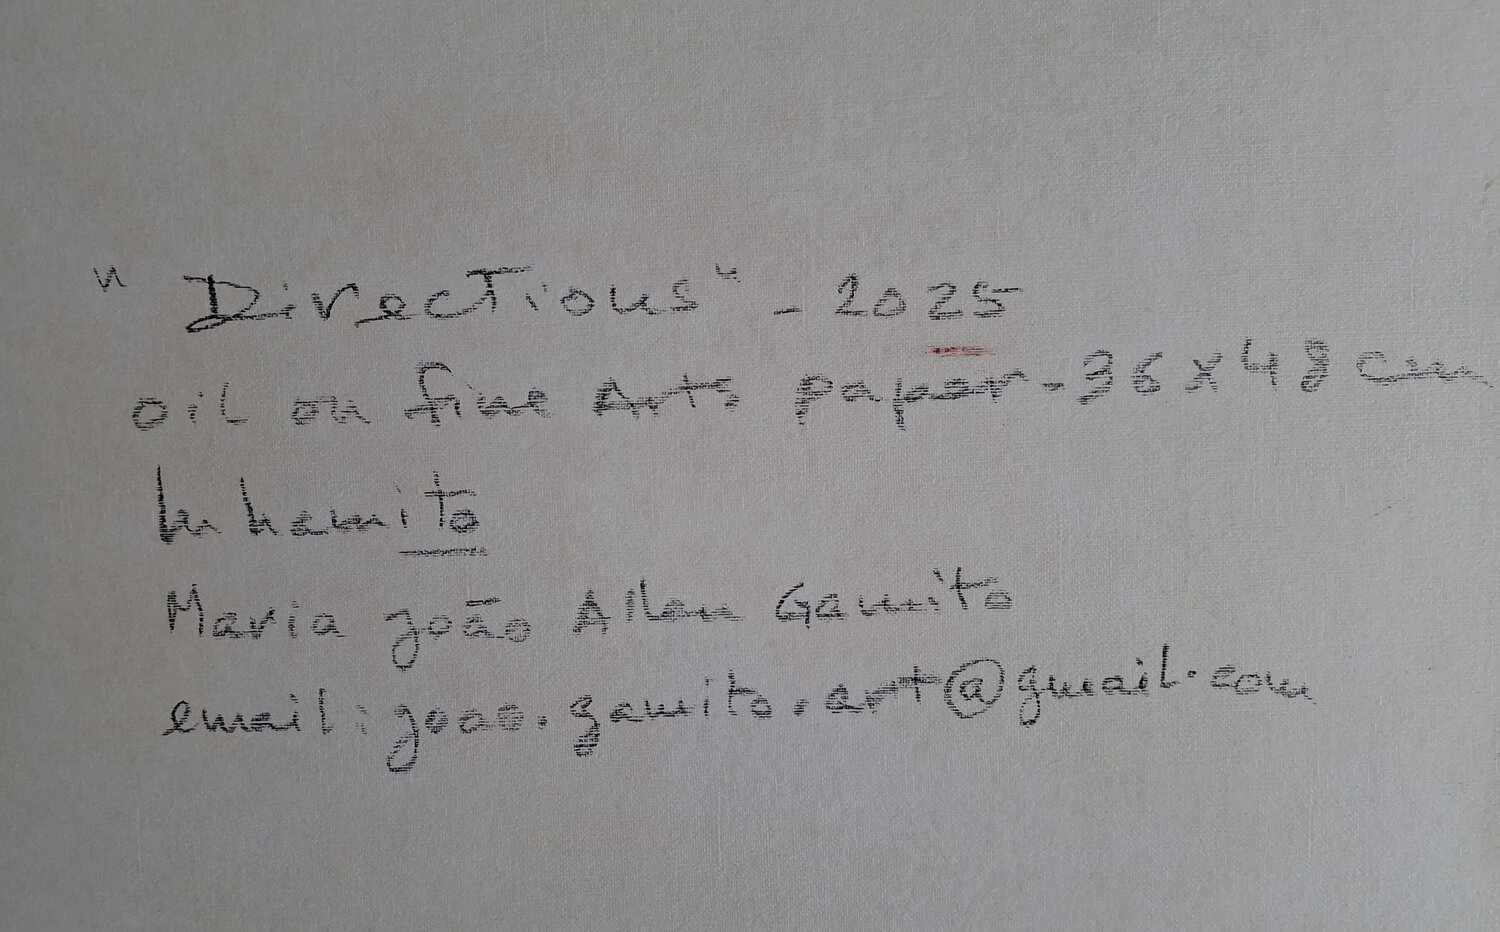 "Directions" - 2025
oil on fine Arts paper - 36x48cm
Maria João Allen Gamito
email: joao.gamito.art@gmail.com